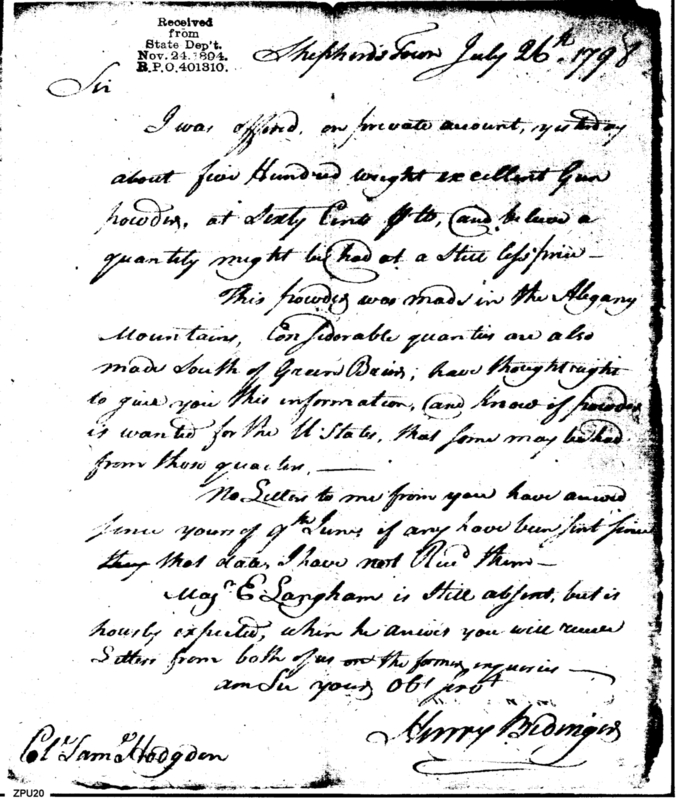 Received
from
State Dep't.
Nov. 24. 1894.
R.P.O. 401310.
Shepherds Town July 26th 1798
Sir
I was offered, on private account, yesterday
about five Hundred weight excellent Gun
powder, at Sixty Cents lb, and beleive a
quantity might be had at a Still less price —
This powder was made in the Alegany
Mountains, Considorable quanties are also
made South of Green Brier; have thought right
to give you this information, and know if powder
is wanted for the U States, that some may be had
from those quarters. —
No Letters to me from you have arived
since yours of 9th June, if any have been sent since
that date, I have not Recd them —
Majr E Langham is still absent, but is
hourly expected, when he arives you will receve
Letters from both of us on the former inqueries —
am Sir your Obt Servt
Henry Bedinger
Col Saml Hodgden
ZPU20